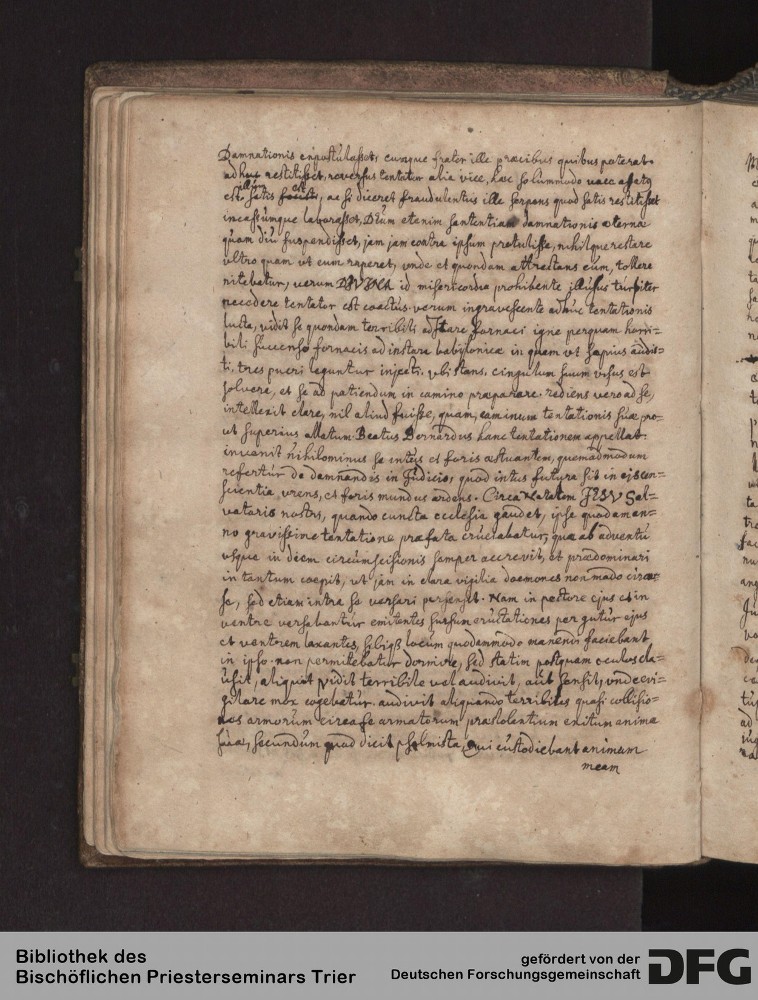 Damnationis expostulasset, cumque frater ille præcibus quibus poterat
ad huc restitisset, reversus tentator alia vice, hac solummodo voce
est satis fecisti, ac si diceret fraudulentus ille serpens quod satis restitisset
incassumque laborasset, Deum etenim sententiam damnationis æternæ
quam diu suspendisset, jam jam contra ipsum protulisse, nihilque restare
ultro quam ut eum raperet, unde et quondam attrectans eum, tollere
nitebatur, verum DIVINA id misericordia prohibente illusus turpiter
recedere tentator est coactus. verum ingravescente adhuc tentationis
lucta, vidit se quondam terribili adstare fornaci igne perquam horri=
bili succensæ fornacis ad instar babylonicæ in quam ut sæpius audis=
ti, tres pueri leguntur injecti. ubi stans, cingulum suum visus est
solvere, et se ad patiendum in camino præparare. rediens vero ad se,
intellexit clare, nil aliud fuisse, quam caminum tentationis suæ,
ut superius allatum Beatus Bernardus hanc tentationem appellat.
invenit nihilominus se intus et foris æstuantem, quemadmodum
refertur de damnandis in Judicio, quod intus futura sit in ejs con=
scientia urens, et foris mundus ardens. Circa Natalem JESV Sal=
vatoris nostri, quando cuncta ecclesia gaudet, ipse quodam man=
no gravissime tentatione præfata cruciabatur, quæ ab adventu
usque in diem circumcisionis semper accrevit, et prædominari
in tantum coepit, ut jam in clara vigilia daemones non modo circa
se, sed etiam intra se versari persensit. Nam in pectore ejus et in
ventre versabantur emitentes sursum eructationes per gutur ejus
et ventrem laxantes, sibiqß locum quodammodo manendi faciebant
in ipso. non permitebatur dormire, sed statim postquam oculos cla=
usit, aliquot vidit terribile vel audivit, aut sensit, unde evi=
gilare mox cogebatur. audivit aliquando terribiles quasi collisio=
nes armorum circa se armatorum præstolentium exitum animæ
suæ, secundum quod dicit psalmista, qui custodiebant animam
meam
Bibliothek des
Bischöflichen Priesterseminars Trier
gefördert von der
Deutschen Forschungsgemeinschaft
DFG